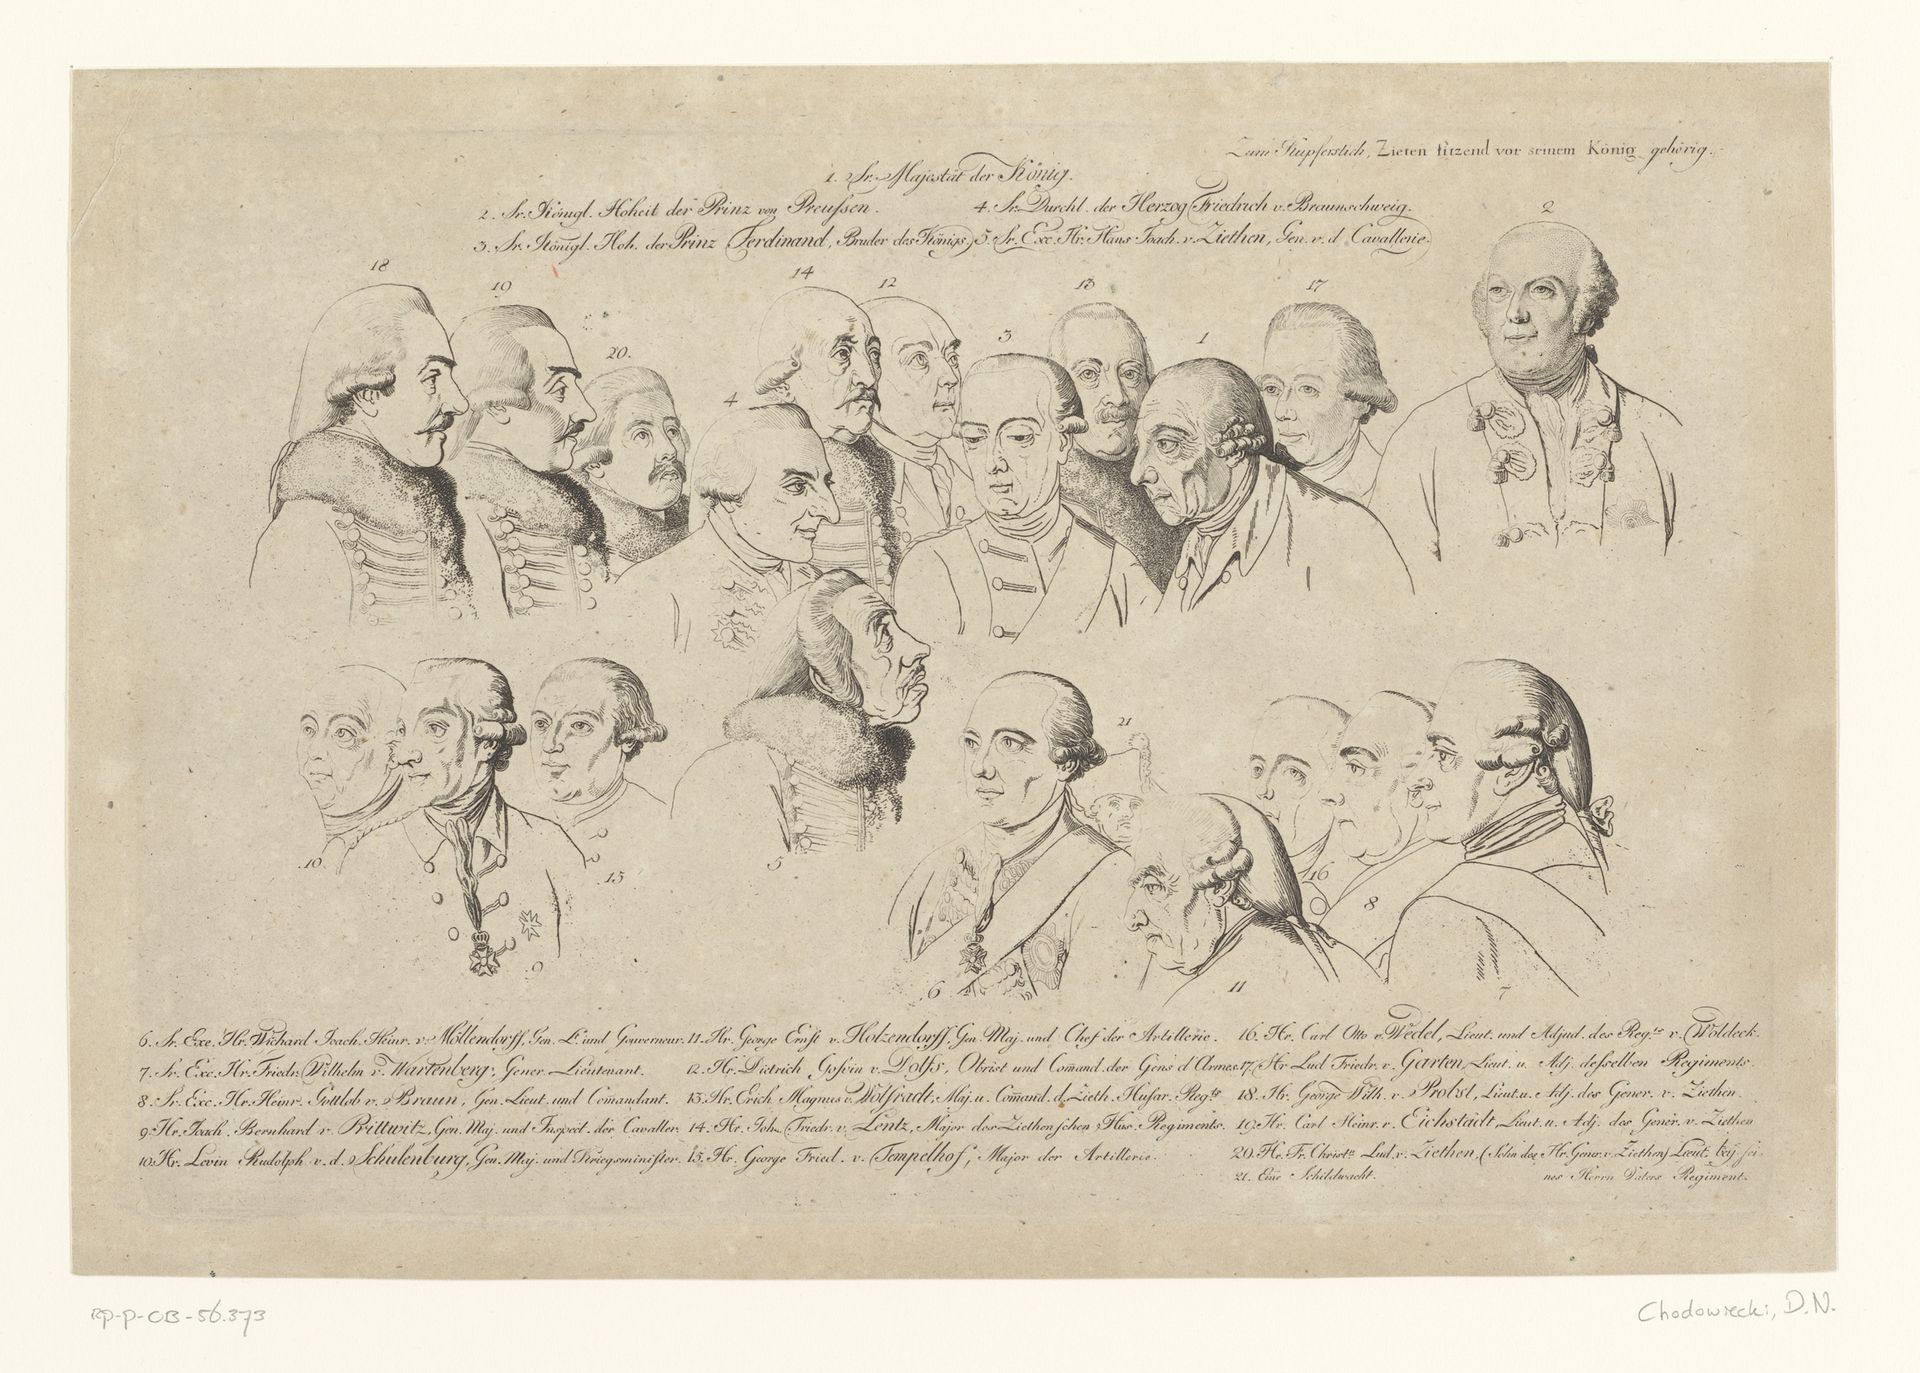 Zum Kupferstich, Zieten sitzend vor seinem König gehörig.
1. Sr. Majestät der König.
2. Sr. Königl. Hoheit der Prinz von Preußen.
4. Sr. Durchl. der Herzog Friedrich v. Braunschweig.
3. Sr. Königl. Hoh. der Prinz Ferdinand, Bruder des Königs
5. Sr. Exc. Hr. Hans Joach. v. Ziethen, Gen. v. d. Cavallerie.
2
18
19
14
12
13
17
3
1
20.
4
21
10
15
5
16
8
9
6
11
7
6. Sr. Exc. Hr. Wichard Joach. Heinr. v. Möllendorff, Gen. Lt. und Gouverneur.
7. Sr. Exc. Hr. Friedr. Wilhelm v. Wartenberg, Gener. Lieutenant.
8. Sr. Exc. Hr. Heinr. Gottlob v. Braun, Gen. Lieut. und Com̄andant.
9. Hr. Joach. Bernhard v. Prittwitz, Gen. Maj. und Inspect. der Cavaller.
10. Hr. Levin Rudolph v. d. Schulenburg, Gen. Maj. und Kriegsminister.
11. Hr. George Ernst v. Holzendorff, Gen. Maj. und Chef der Artillerie.
12. Hr. Dietrich Goswin v. Dolfs, Obrist und Com̄and. der Gens d'Armes
13. Hr. Erich Magnus v. Wolfradt, Maj. u. Com̄and. d. Zieth. Husar. Regts
14. Hr. Joh. Friedr. v. Lentz, Major des Ziethenschen Hus. Regiments.
15. Hr. George Fried. v. Tempelhof, Major der Artillerie.
16. Hr. Carl Otto v. Wedel, Lieut. und Adjud. des Regts v. Woldeck.
17. Hr. Lud. Friedr. v. Garten, Lieut. u. Adj. desselben Regiments.
18. Hr. George Wilh. v. Probst, Lieut. u. Adj. des Gener. v. Ziethen.
19. Hr. Carl Heinr. v. Eichstädt, Lieut. u. Adj. des Gener. v. Ziethen
20. Hr. Fr. Christn Lud. v. Ziethen, (Sohn des Hr. Gener. v. Ziethen) Lieut. bey sei-
nes Herrn Vaters Regiment.
21. Eine Schildwacht.
RP-P-OB-56.373
Chodowiecki, D.N.